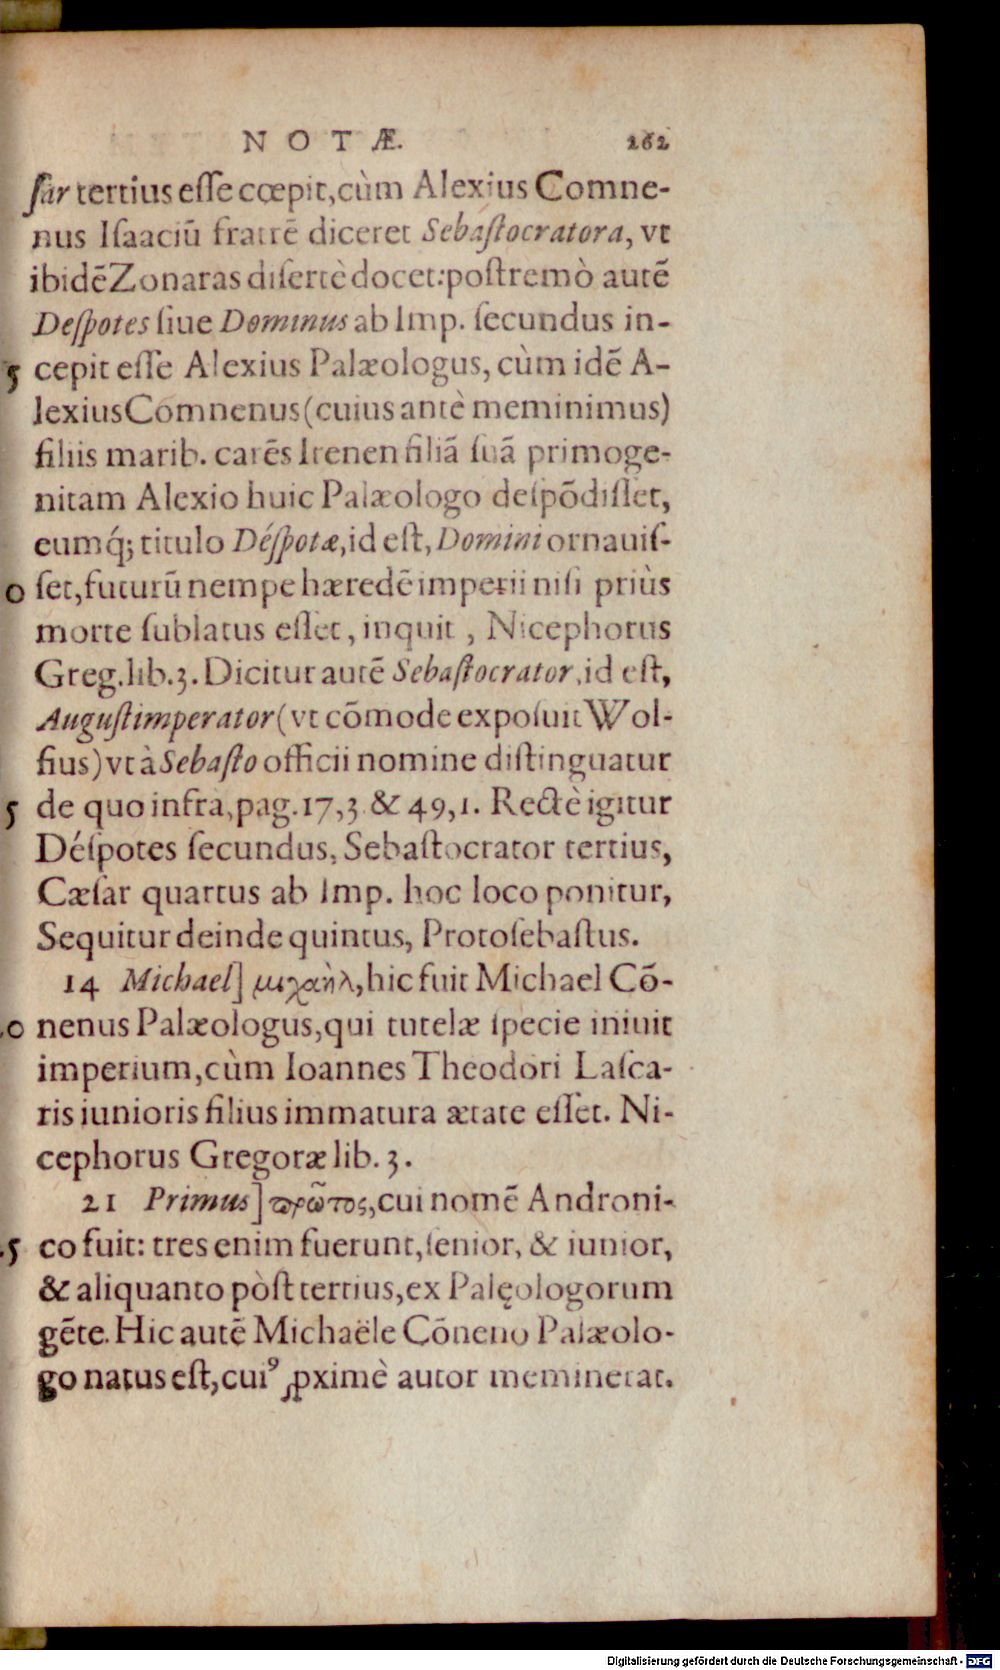 NOTÆ. 262
ſar tertius eſſe cœpit, cùm Alexius Comne-
nus Iſaaciũ fratrẽ diceret Sebaſtocratora, vt
ibidẽ Zonaras diſertè docet: poſtremò autẽ
Deſpotes ſiue Dominus ab Imp. ſecundus in-
5 cepit eſſe Alexius Palæologus, cùm idẽ A-
lexius Comnenus (cuius antè meminimus)
filiis marib. carẽs Irenen filiã ſuã primoge-
nitam Alexio huic Palæologo deſpõdiſſet,
eumq́; titulo Déſpotæ, id eſt, Domini ornauiſ-
0 ſet, futurũ nempe hæredẽ imperii niſi priùs
morte ſublatus eſſet, inquit, Nicephorus
Greg. lib. 3. Dicitur autẽ Sebaſtocrator, id eſt,
Auguſtimperator (vt cõmode expoſuit Wol-
fius) vt à Sebaſto officii nomine diſtinguatur
5 de quo infra, pag. 17, 3 & 49, 1. Rectè igitur
Déſpotes ſecundus, Sebaſtocrator tertius,
Cæſar quartus ab Imp. hoc loco ponitur,
Sequitur deinde quintus, Protoſebaſtus.
14 Michael] μιχαὴλ, hic fuit Michael Cõ-
.0 nenus Palæologus, qui tutelæ ſpecie iniuit
imperium, cùm Ioannes Theodori Laſca-
ris iunioris filius immatura ætate eſſet. Ni-
cephorus Gregoræ lib. 3.
21 Primus] ϖρῶτος, cui nomẽ Androni-
.5 co fuit: tres enim fuerunt, ſenior, & iunior,
& aliquanto pòſt tertius, ex Palęologorum
gẽte. Hic autẽ Michaële Cõneno Palæolo-
go natus eſt, cuiꝰ ꝓximè autor meminerat.
Digitalisierung gefördert durch die Deutsche Forschungsgemeinschaft - DFG